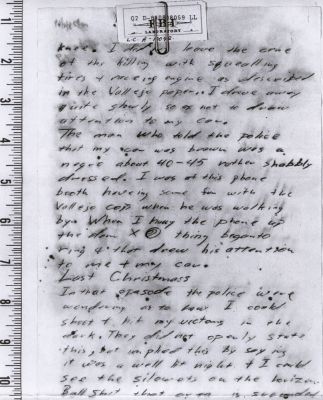 FBI
LABORATORY
have. I did leave the cene
of the killing with squealling
tires & raceing engine as described
in the Vallejo paper. I drove away
quite slowly so as not to draw
attention to my car.
The man who told the police
that my car was brown was a
negro about 40-45 rather shabbly
dressed. I was at this phone
booth haveing some fun with the
Vallejo cop when he was walking
by. When I hung the phone up
the dam X @ thing began to
ring & that drew his attention
to me & my car.
Last Christmass
In that epasode the police were
wondering as to how I could
shoot & hit my victoms in the
dark. They did not openly state
this, but implied this by saying
it was a well lit night & I could
see the silowets on the horizon.
Bull Shit that area is
2
3
4
5
6
7
8
9
10